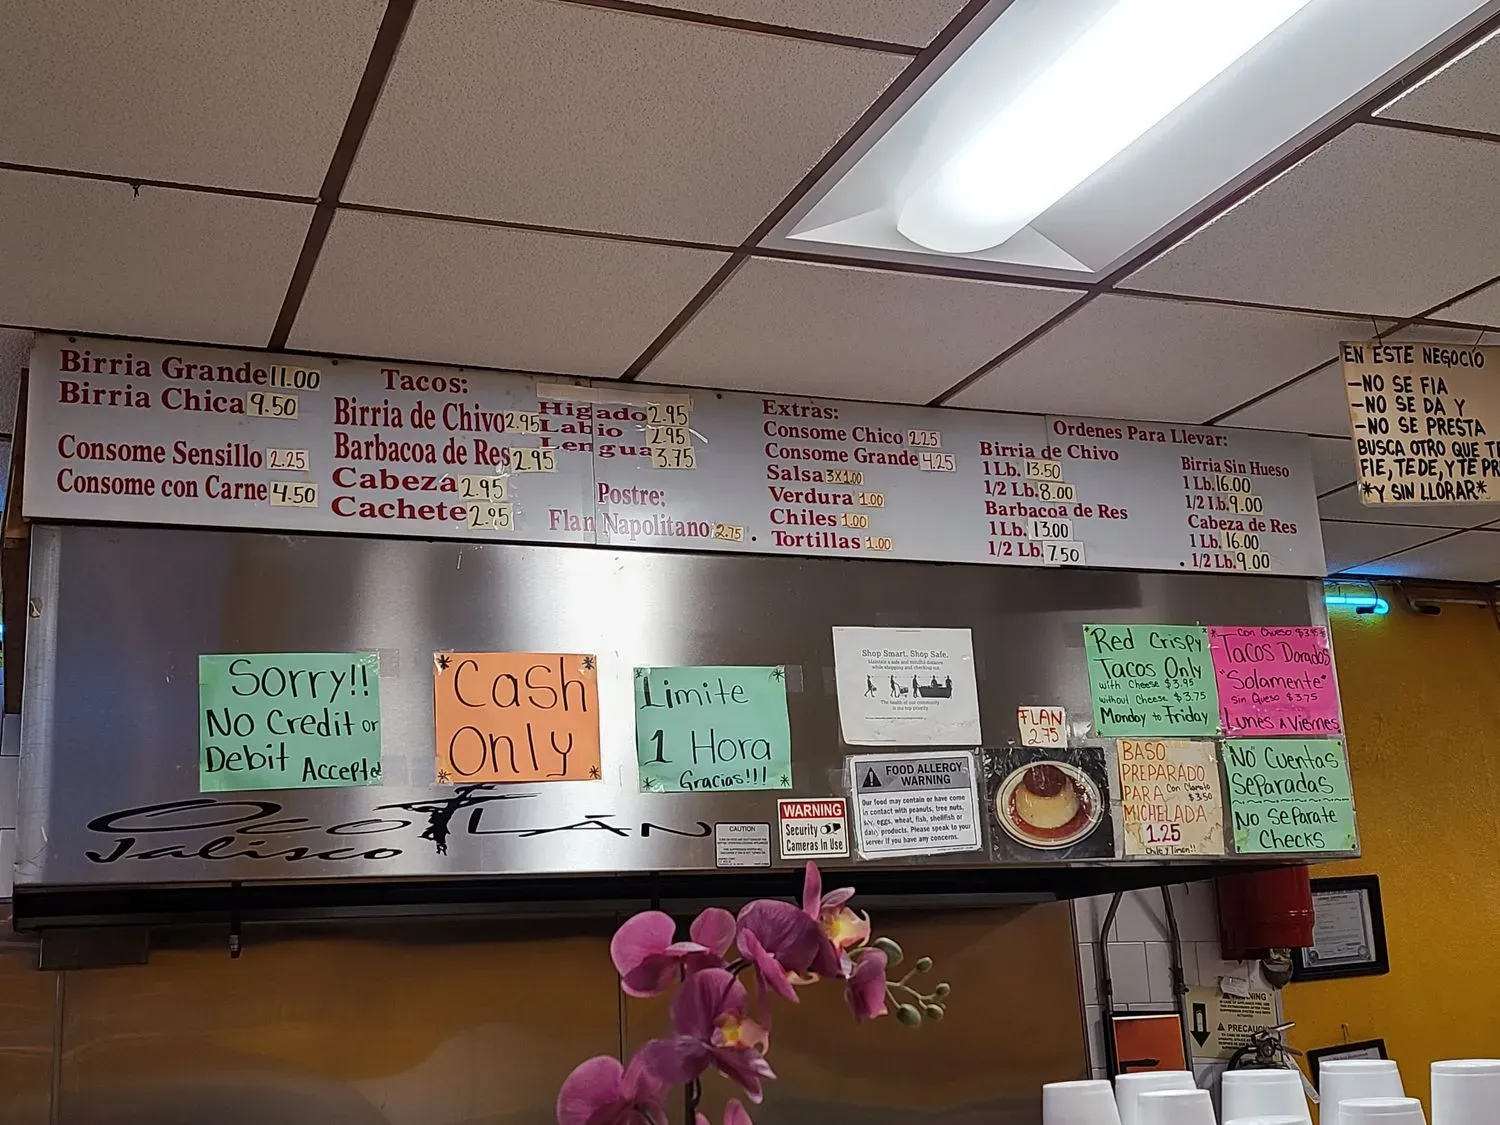 Birria Grande 11.00
Birria Chica 9.50
Consome Sensillo 2.25
Consome con Carne 4.50
Tacos:
Birria de Chivo 2.95
Barbacoa de Res 2.95
Cabeza 2.95
Cachete 2.95
Higado 2.95
Labio 2.95
Lengua 3.75
Postre:
Flan Napolitano 2.75
Extras:
Consome Chico 2.25
Consome Grande 4.25
Salsa 3x1.00
Verdura 1.00
Chiles 1.00
Tortillas 1.00
Ordenes Para Llevar:
Birria de Chivo
1 Lb. 13.50
1/2 Lb. 8.00
Barbacoa de Res
1 Lb. 13.00
1/2 Lb. 7.50
Birria Sin Hueso
1 Lb. 16.00
1/2 Lb. 9.00
Cabeza de Res
1 Lb. 16.00
1/2 Lb. 9.00
EN ESTE NEGOCIO
-NO SE FIA
-NO SE DA Y
-NO SE PRESTA
BUSCA OTRO QUE TE
FIE, TE DE, Y TE PR
*Y SIN LLORAR*
Sorry!!
No Credit or
Debit Accepted
Cash
Only
Limite
1 Hora
Gracias!!!!
Shop Smart. Shop Safe.
Maintain a safe and mindful distance
while shopping and checking out.
The health of our community
is our top priority.
FLAN
2.75
Red Crispy
Tacos Only
with Cheese $3.95
without Cheese $3.75
Monday to Friday
con Queso $3.95
Tacos Dorados
"Solamente"
sin Queso $3.75
Lunes A Viernes
OCOTLÁN
Jalisco
CAUTION
WARNING
Security
Cameras In Use
FOOD ALLERGY
WARNING
Our food may contain or have come
in contact with peanuts, tree nuts,
soy, eggs, wheat, fish, shellfish or
dairy products. Please speak to your
server if you have any concerns.
BASO
PREPARADO
PARA Con Clamato $3.50
MICHELADA
1.25
Chile y Limon!!
No Cuentas
Separadas
No Separate
Checks
WARNING
PRECAUC